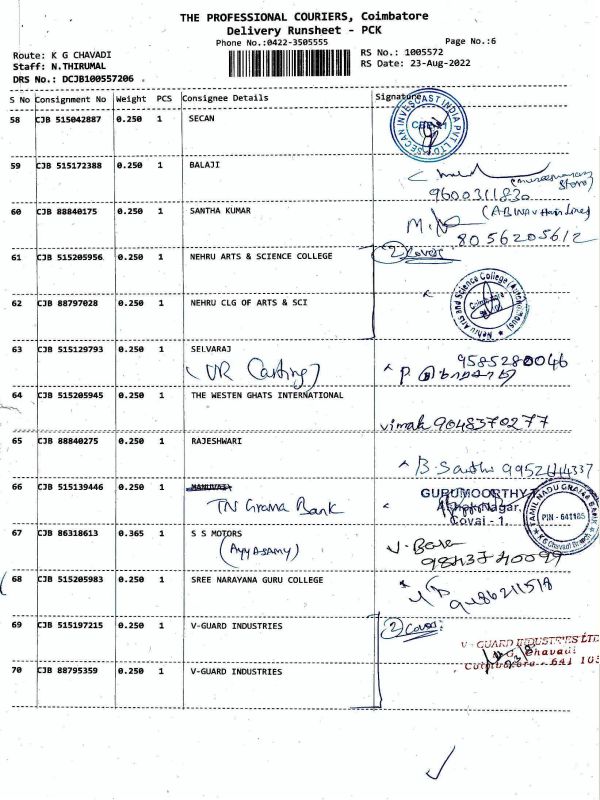 THE PROFESSIONAL COURIERS, Coimbatore
Delivery Runsheet - PCK
Phone No.:0422-3505555
Page No.:6
Route: K G CHAVADI
Staff: N.THIRUMAL
DRS No.: DCJB100557206
RS No.: 1005572
RS Date: 23-Aug-2022
S No Consignment No Weight PCS Consignee Details Signature
58 CJB 515042887 0.250 1 SECAN
SECAN INVESCAST INDIA PVT LTD
59 CJB 515172388 0.250 1 BALAJI
9600311830
60 CJB 88840175 0.250 1 SANTHA KUMAR
8056205612
61 CJB 515205956 0.250 1 NEHRU ARTS & SCIENCE COLLEGE
2 Cover
62 CJB 88797028 0.250 1 NEHRU CLG OF ARTS & SCI
Nehru Arts and Science College (Autonomous)
63 CJB 515129793 0.250 1 SELVARAJ
(VR Casting)
9585280046
64 CJB 515205945 0.250 1 THE WESTEN GHATS INTERNATIONAL
vimal 9048370277
65 CJB 88840275 0.250 1 RAJESHWARI
66 CJB 515139446 0.250 1
TN Grama Bank
GURUMOORTHY
Covai - 1.
TAMIL NADU GRAMA BANK
PIN - 641105
K G Chavadi Branch
67 CJB 86318613 0.365 1 S S MOTORS
(Ayyasamy)
68 CJB 515205983 0.250 1 SREE NARAYANA GURU COLLEGE
9486211518
69 CJB 515197215 0.250 1 V-GUARD INDUSTRIES
2 Cover
V - GUARD INDUSTRIES LTD
K.G. Chavadi
Coimbatore - 641 105
70 CJB 88795359 0.250 1 V-GUARD INDUSTRIES